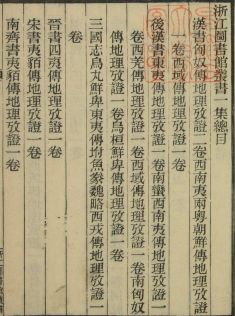 浙江圖書館叢書一集總目
漢書匈奴傳地理攷證二卷西南夷兩粵朝鮮傳地理攷證
一卷西域傳地理攷證一卷
後漢書東夷傳地理攷證一卷南蠻西南夷傳地理攷證一
卷西羌傳地理攷證一卷西域傳地理攷證一卷南匈奴
傳地理攷證一卷烏桓鮮卑傳地理攷證一卷
三國志烏丸鮮卑東夷傳坿魚豢魏略西戎傳地理攷證一
卷
晉書四夷傳地理攷證一卷
宋書夷貊傳地理攷證一卷
南齊書夷貊傳地理攷證一卷